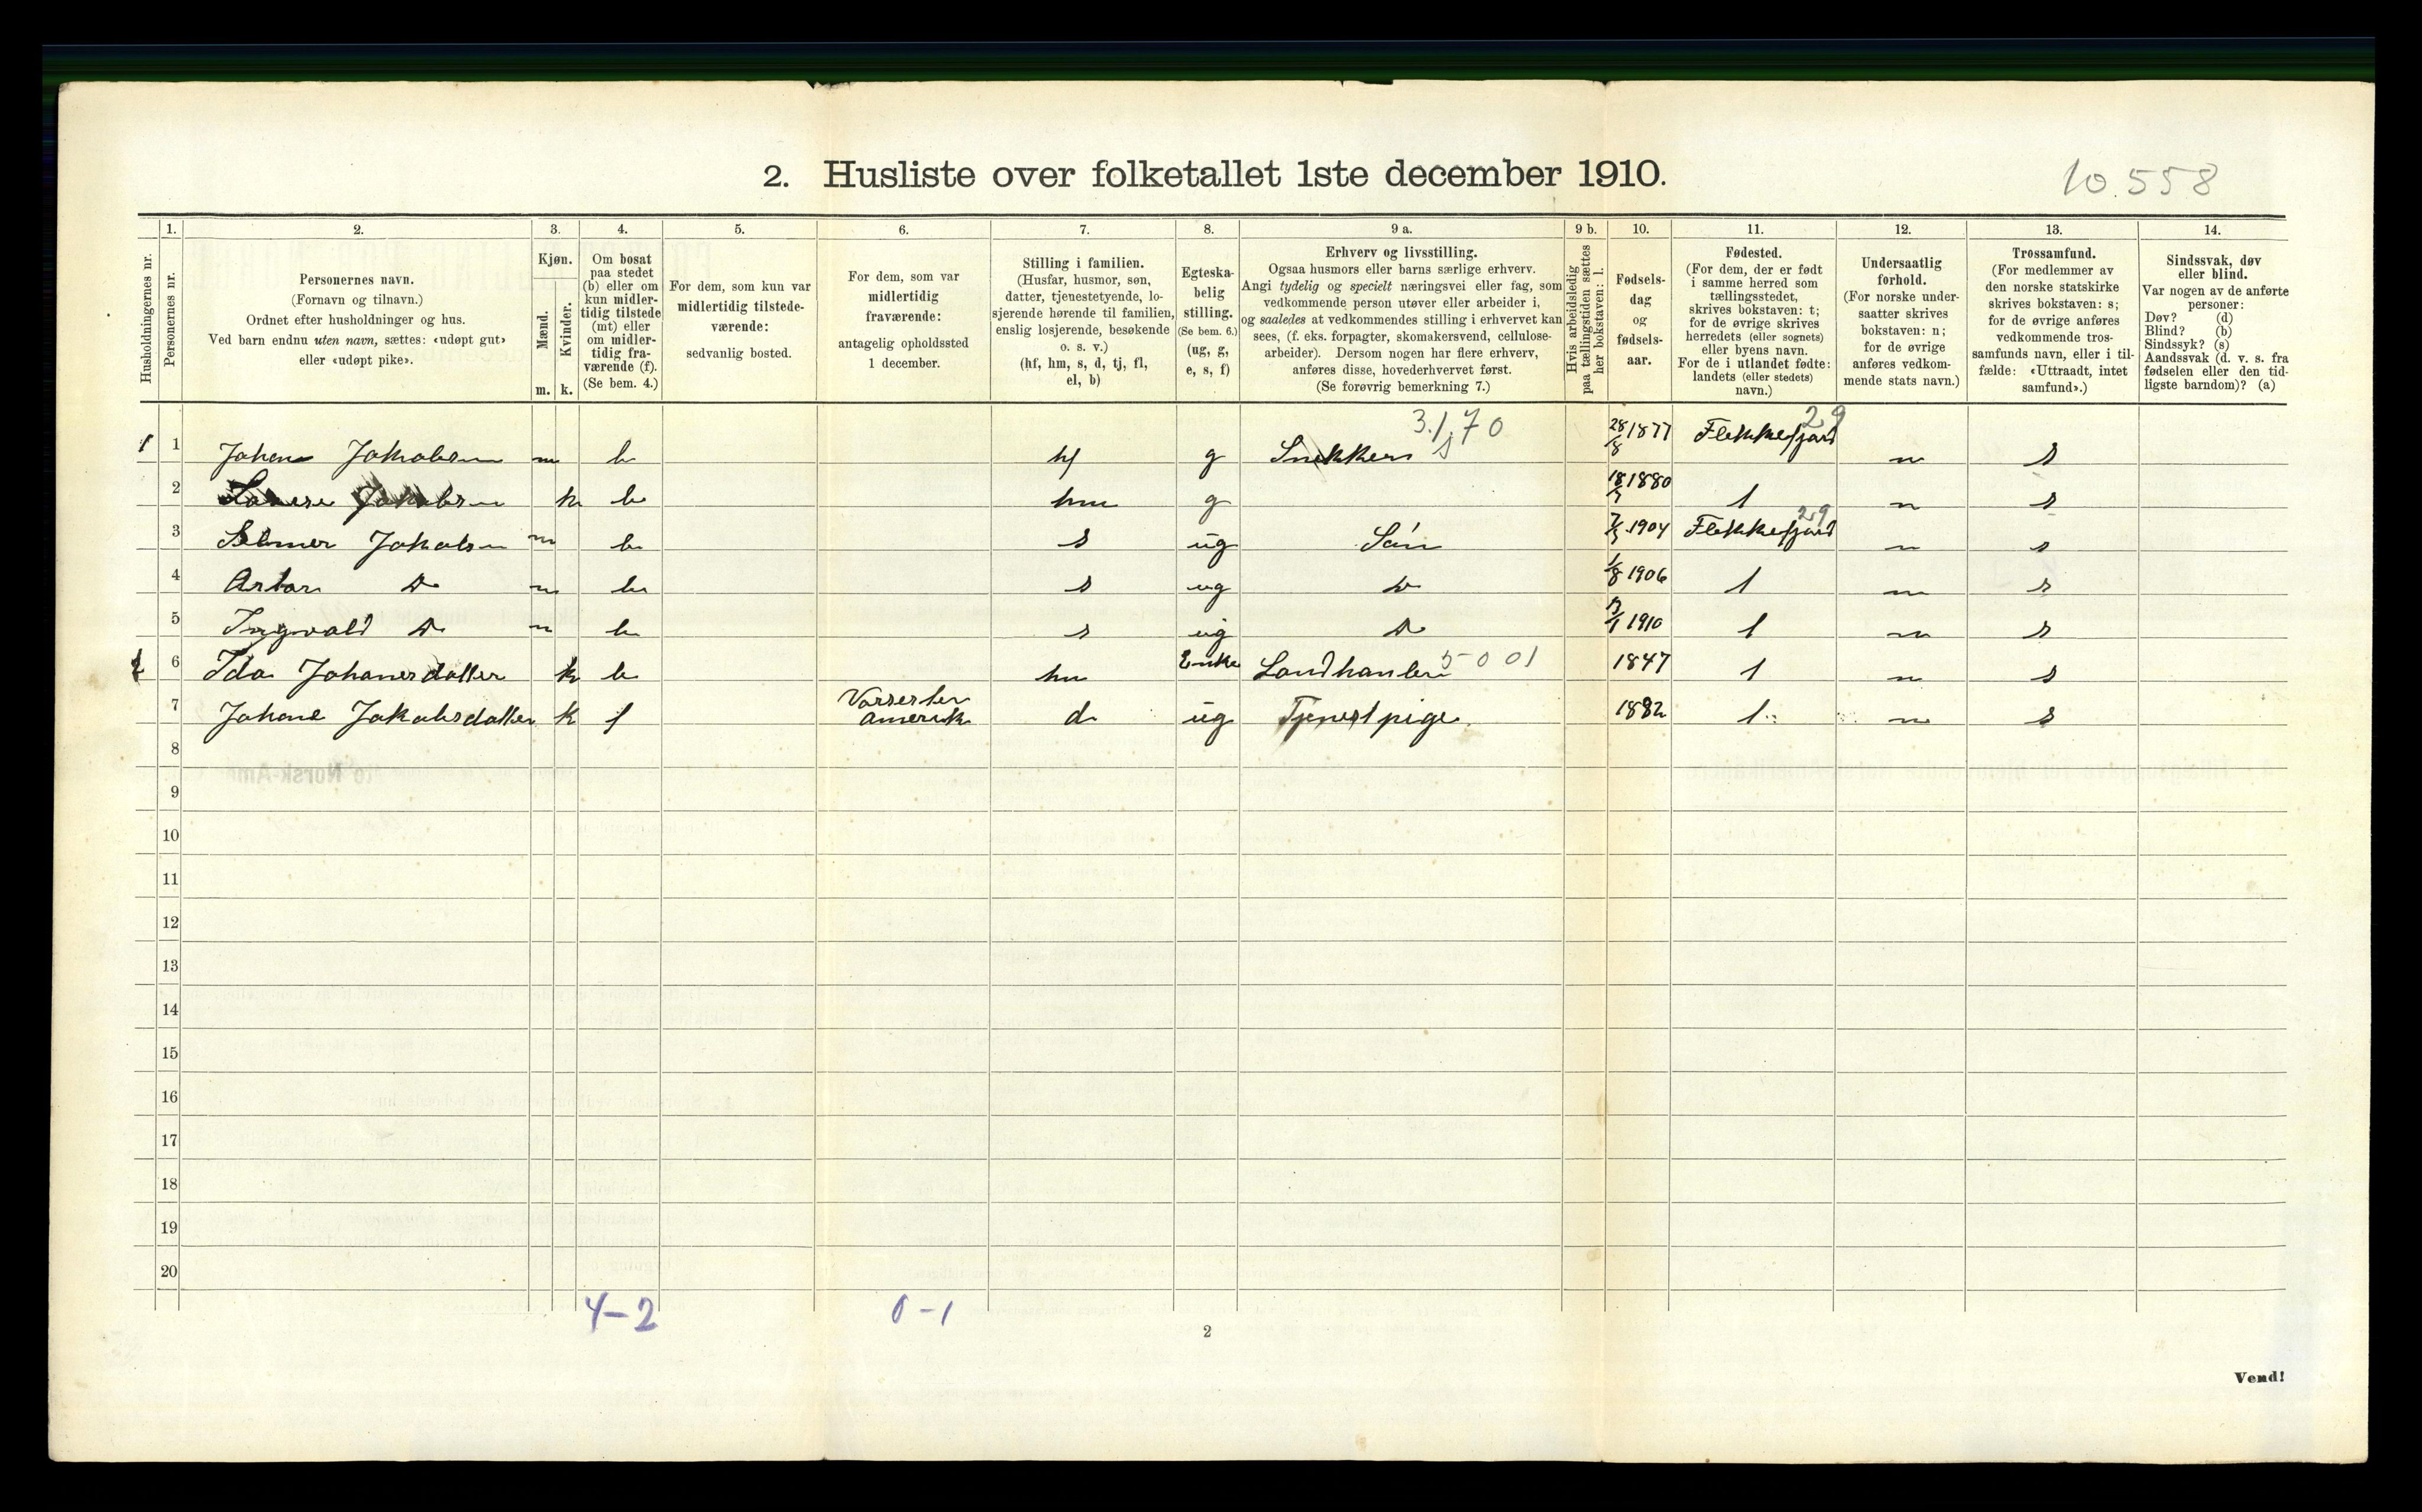 2. Husliste over folketallet 1ste december 1910.
10.558
1. 2. 3. 4. 5. 6. 7. 8. 9 a. 9 b. 10. 11. 12. 13. 14.
Husholdningernes nr.
Personernes nr.
Personernes navn.
(Fornavn og tilnavn.)
Ordnet efter husholdninger og hus.
Ved barn endnu uten navn, sættes: «udøpt gut»
eller «udøpt pike».
Kjøn.
Mænd.
Kvinder.
m. k.
Om bosat
paa stedet
(b) eller om
kun midler-
tidig tilstede
(mt) eller
om midler-
tidig fra-
værende (f).
(Se bem. 4.)
For dem, som kun var
midlertidig tilstede-
værende:
sedvanlig bosted.
For dem, som var
midlertidig
fraværende:
antagelig opholdssted
1 december.
Stilling i familien.
(Husfar, husmor, søn,
datter, tjenestetyende, lo-
sjerende hørende til familien,
enslig losjerende, besøkende
o. s. v.)
(hf, hm, s, d, tj, fl,
el, b)
Egteska-
belig
stilling.
(Se bem. 6.)
(ug, g,
e, s, f)
Erhverv og livsstilling.
Ogsaa husmors eller barns særlige erhverv.
Angi tydelig og specielt næringsvei eller fag, som
vedkommende person utøver eller arbeider i,
og saaledes at vedkommendes stilling i erhvervet kan
sees, (f. eks. forpagter, skomakersvend, cellulose-
arbeider). Dersom nogen har flere erhverv,
anføres disse, hovederhvervet først.
(Se forøvrig bemerkning 7.)
Hvis arbeidsledig
paa tællingstiden sættes
her bokstaven: l.
Fødsels-
dag
og
fødsels-
aar.
Fødested.
(For dem, der er født
i samme herred som
tællingsstedet,
skrives bokstaven: t;
for de øvrige skrives
herredets (eller sognets)
eller byens navn.
For de i utlandet fødte:
landets (eller stedets)
navn.)
Undersaatlig
forhold.
(For norske under-
saatter skrives
bokstaven: n;
for de øvrige
anføres vedkom-
mende stats navn.)
Trossamfund.
(For medlemmer av
den norske statskirke
skrives bokstaven: s;
for de øvrige anføres
vedkommende tros-
samfunds navn, eller i til-
fælde: «Uttraadt, intet
samfund».)
Sindssvak, døv
eller blind.
Var nogen av de anførte
personer:
Døv? (d)
Blind? (b)
Sindssyk? (s)
Aandssvak (d. v. s. fra
fødselen eller den tid-
ligste barndom)? (a)
3.1.70 29
1 1 Johan Jakobsen m b hf g Snekker 28/8 1877 Flekkefjord n s
2 Jakobsen k b hm g 1880 t n s
29
3 Jakobsen m b s ug Sön 1904 Flekkefjord n s
4 Artur Do m b s ug Do 1/8 1906 t n s
5 Ingvald Do m b s ug Do 1910 t n s
2 6 Ida Johanesdatter k b hm Enke Landhanleri 5001 1847 t n s
7 Johane Jakobsdatter k f Vorsester Amerik d ug Tjenestpige 1882 t n s
8
9
10
11
12
13
14
15
16
17
18
19
20
4-2 0-1
2
Vend!